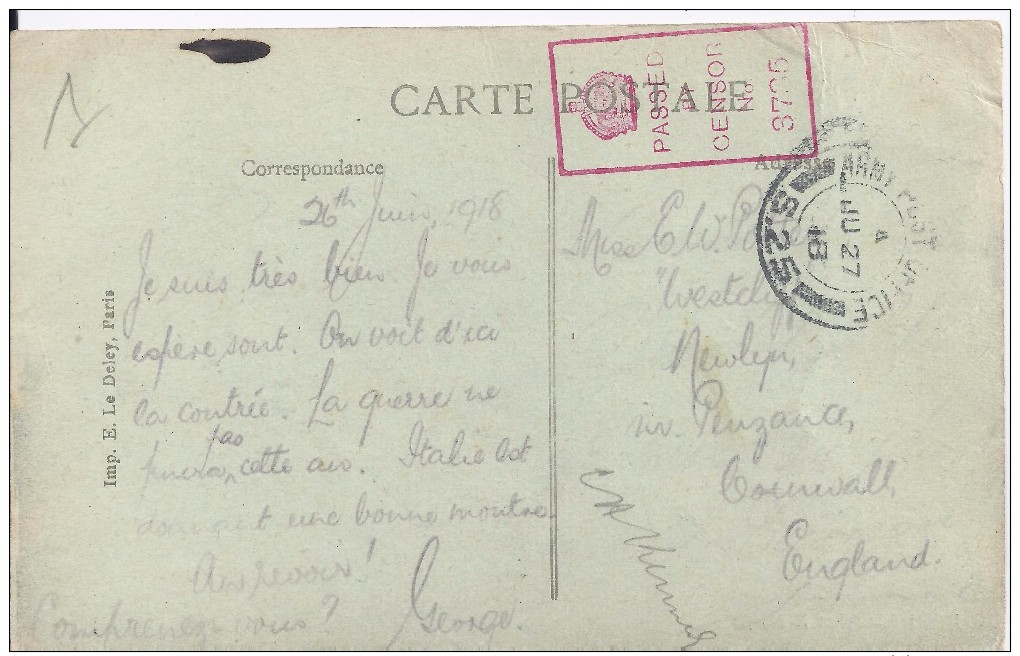 CARTE POSTALE
PASSED
BY
CENSOR
No
3735
Correspondance
Adresse
ARMY POST OFFICE
A
JU 27
18
S.25
26th Juin, 1918
Je suis très bien. Je vous
espère sont. On voit d'ici
la contrée. La guerre ne
pas
cette ans. Italie est
une bonne montre.
Au revoir!
Comprenez vous?
George.
Miss E.W.
"Westcliff"
Newlyn,
nr. Penzance,
Cornwall,
England.
Imp. E. Le Deley, Paris